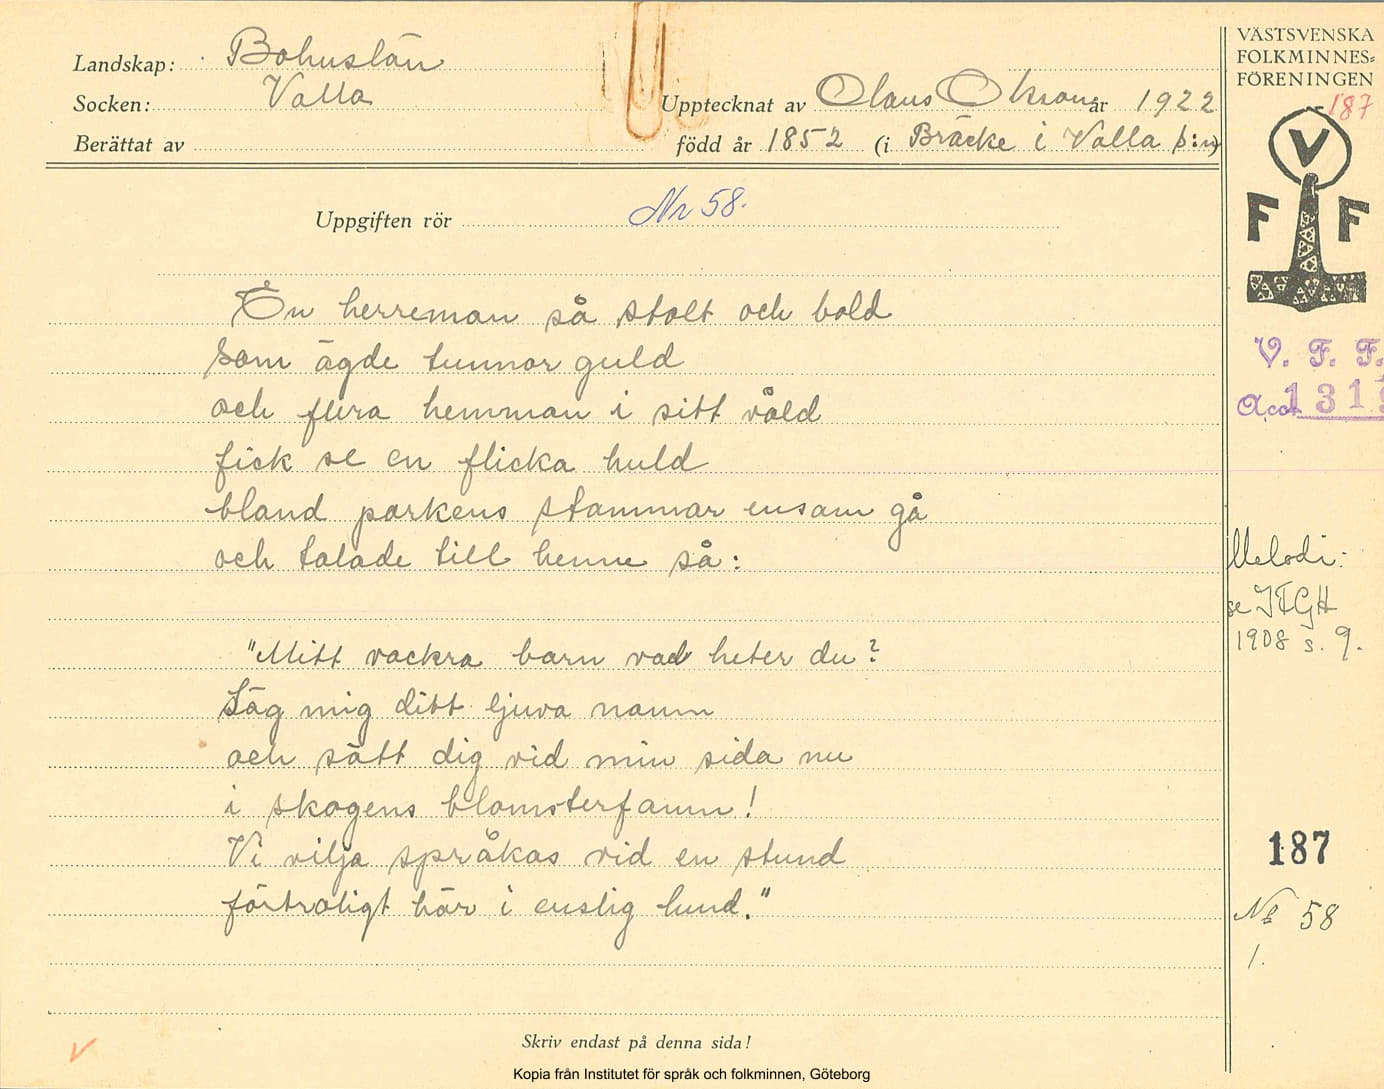 Landskap: Bohuslän
Socken: Valla
Upptecknat av Olaus Olsson år 1922
Berättat av
född år 1852 (i Bräcke i Valla þ:n)
Uppgiften rör Nr 58.
En herreman så stolt och bold
som ägde tunnor guld
och flera hemman i sitt våld
fick se en flicka huld
bland parkens stammar ensam gå
och talade till henne så:
"Mitt vackra barn vad heter du?
Säg mig ditt ljuva namn
och sätt dig vid min sida nu
i skogens blomsterfamn!
Vi vilja språkas vid en stund
förtroligt här i enslig lund."
Skriv endast på denna sida!
Kopia från Institutet för språk och folkminnen, Göteborg
VÄSTSVENSKA
FOLKMINNES=
FÖRENINGEN
187
V
F F
V. F. F.
Acc 131
Melodi:
se
1908 s. 9.
187
Nr 58
1.